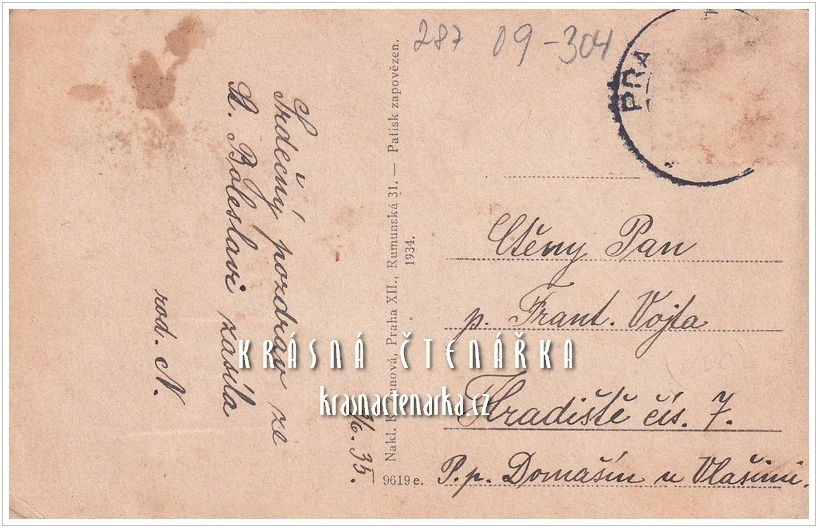 287 09-304
PRA
Srdečný pozdrav ze
St. Boleslavi zasíla
rod. N.
/6. 35.
Nakl. K unová, Praha XII., Rumunská 31. — Patisk zapovězen.
1934.
9619 e.
Ctěny Pan
p. Frant. Vojta
Hradiště čís. 7.
P.p. Domašín u Vlašimi.
KRÁSNÁ ČTENÁŘKA
krasnactenarka.cz